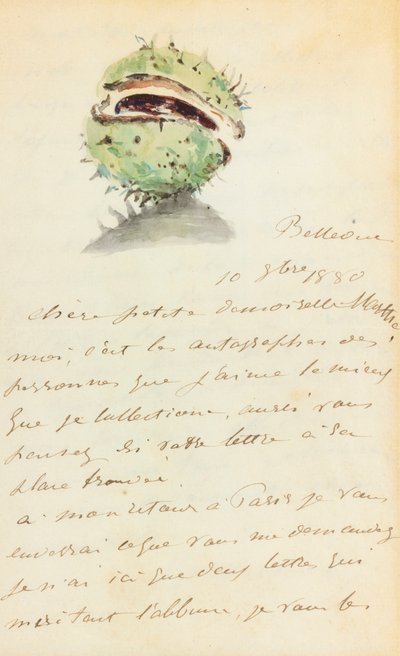 Bellevue
10 8bre 1880
chère petite demoiselle Marthe
moi, c'est les autographes des
personnes que j'aime le mieux
que je collectione, aussi vous
pensez si votre lettre à sa
place trouvée.
a mon retour à Paris je vous
enverrai ce que vous me demandez
je n'ai ici que deux lettres qui
méritent l'album, je vous les